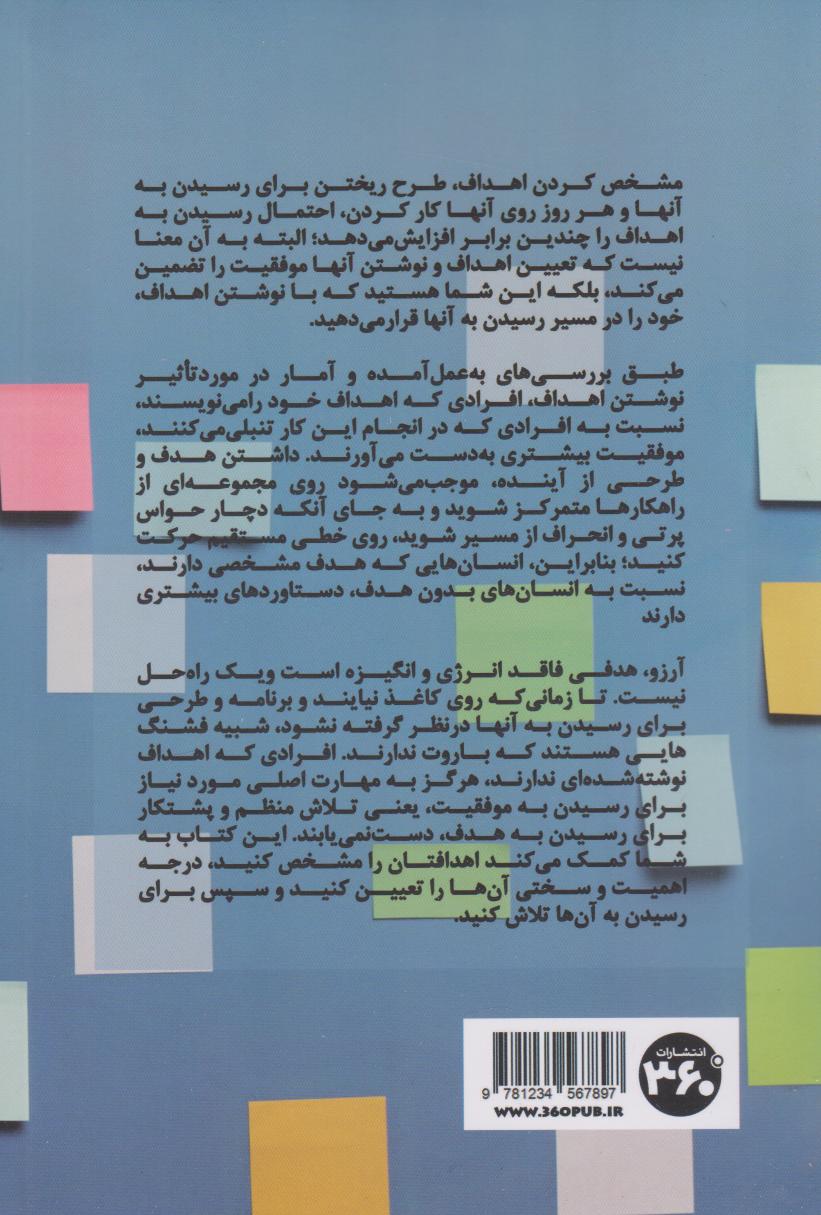 مشخص کردن اهداف، طرح ریختن برای رسیدن به
آنها و هر روز روی آنها کار کردن، احتمال رسیدن به
اهداف را چندین برابر افزایش‌می‌دهد؛ البته به آن معنا
نیست که تعیین اهداف و نوشتن آنها موفقیت را تضمین
می‌کند، بلکه این شما هستید که با نوشتن اهداف،
خود را در مسیر رسیدن به آنها قرارمی‌دهید.
طبق بررسی‌های به‌عمل‌آمده و آمار در موردتأثیر
نوشتن اهداف، افرادی که اهداف خود رامی‌نویسند،
نسبت به افرادی که در انجام این کار تنبلی‌می‌کنند،
موفقیت بیشتری به‌دست می‌آورند. داشتن هدف و
طرحی از آینده، موجب‌می‌شود روی مجموعه‌ای از
راهکارها متمرکز شوید و به جای آنکه دچار حواس
پرتی و انحراف از مسیر شوید، روی خطی مستقیم حرکت
کنید؛ بنابراین، انسان‌هایی که هدف مشخصی دارند،
نسبت به انسان‌های بدون هدف، دستاوردهای بیشتری
دارند
آرزو، هدفی فاقد انرژی و انگیزه است ویک راه‌حل
نیست. تا زمانی‌که روی کاغذ نیایند و برنامه و طرحی
برای رسیدن به آنها درنظر گرفته نشود، شبیه فشنگ
هایی هستند که باروت ندارند. افرادی که اهداف
نوشته‌شده‌ای ندارند، هرگز به مهارت اصلی مورد نیاز
برای رسیدن به موفقیت، یعنی تلاش منظم و پشتکار
برای رسیدن به هدف، دست‌نمی‌یابند. این کتاب به
شما کمک می‌کند اهدافتان را مشخص کنید، درجه
اهمیت و سختی آن‌ها را تعیین کنید و سپس برای
رسیدن به آن‌ها تلاش کنید.
انتشارات
۳۶۰
9 781234 567897
WWW.360PUB.IR